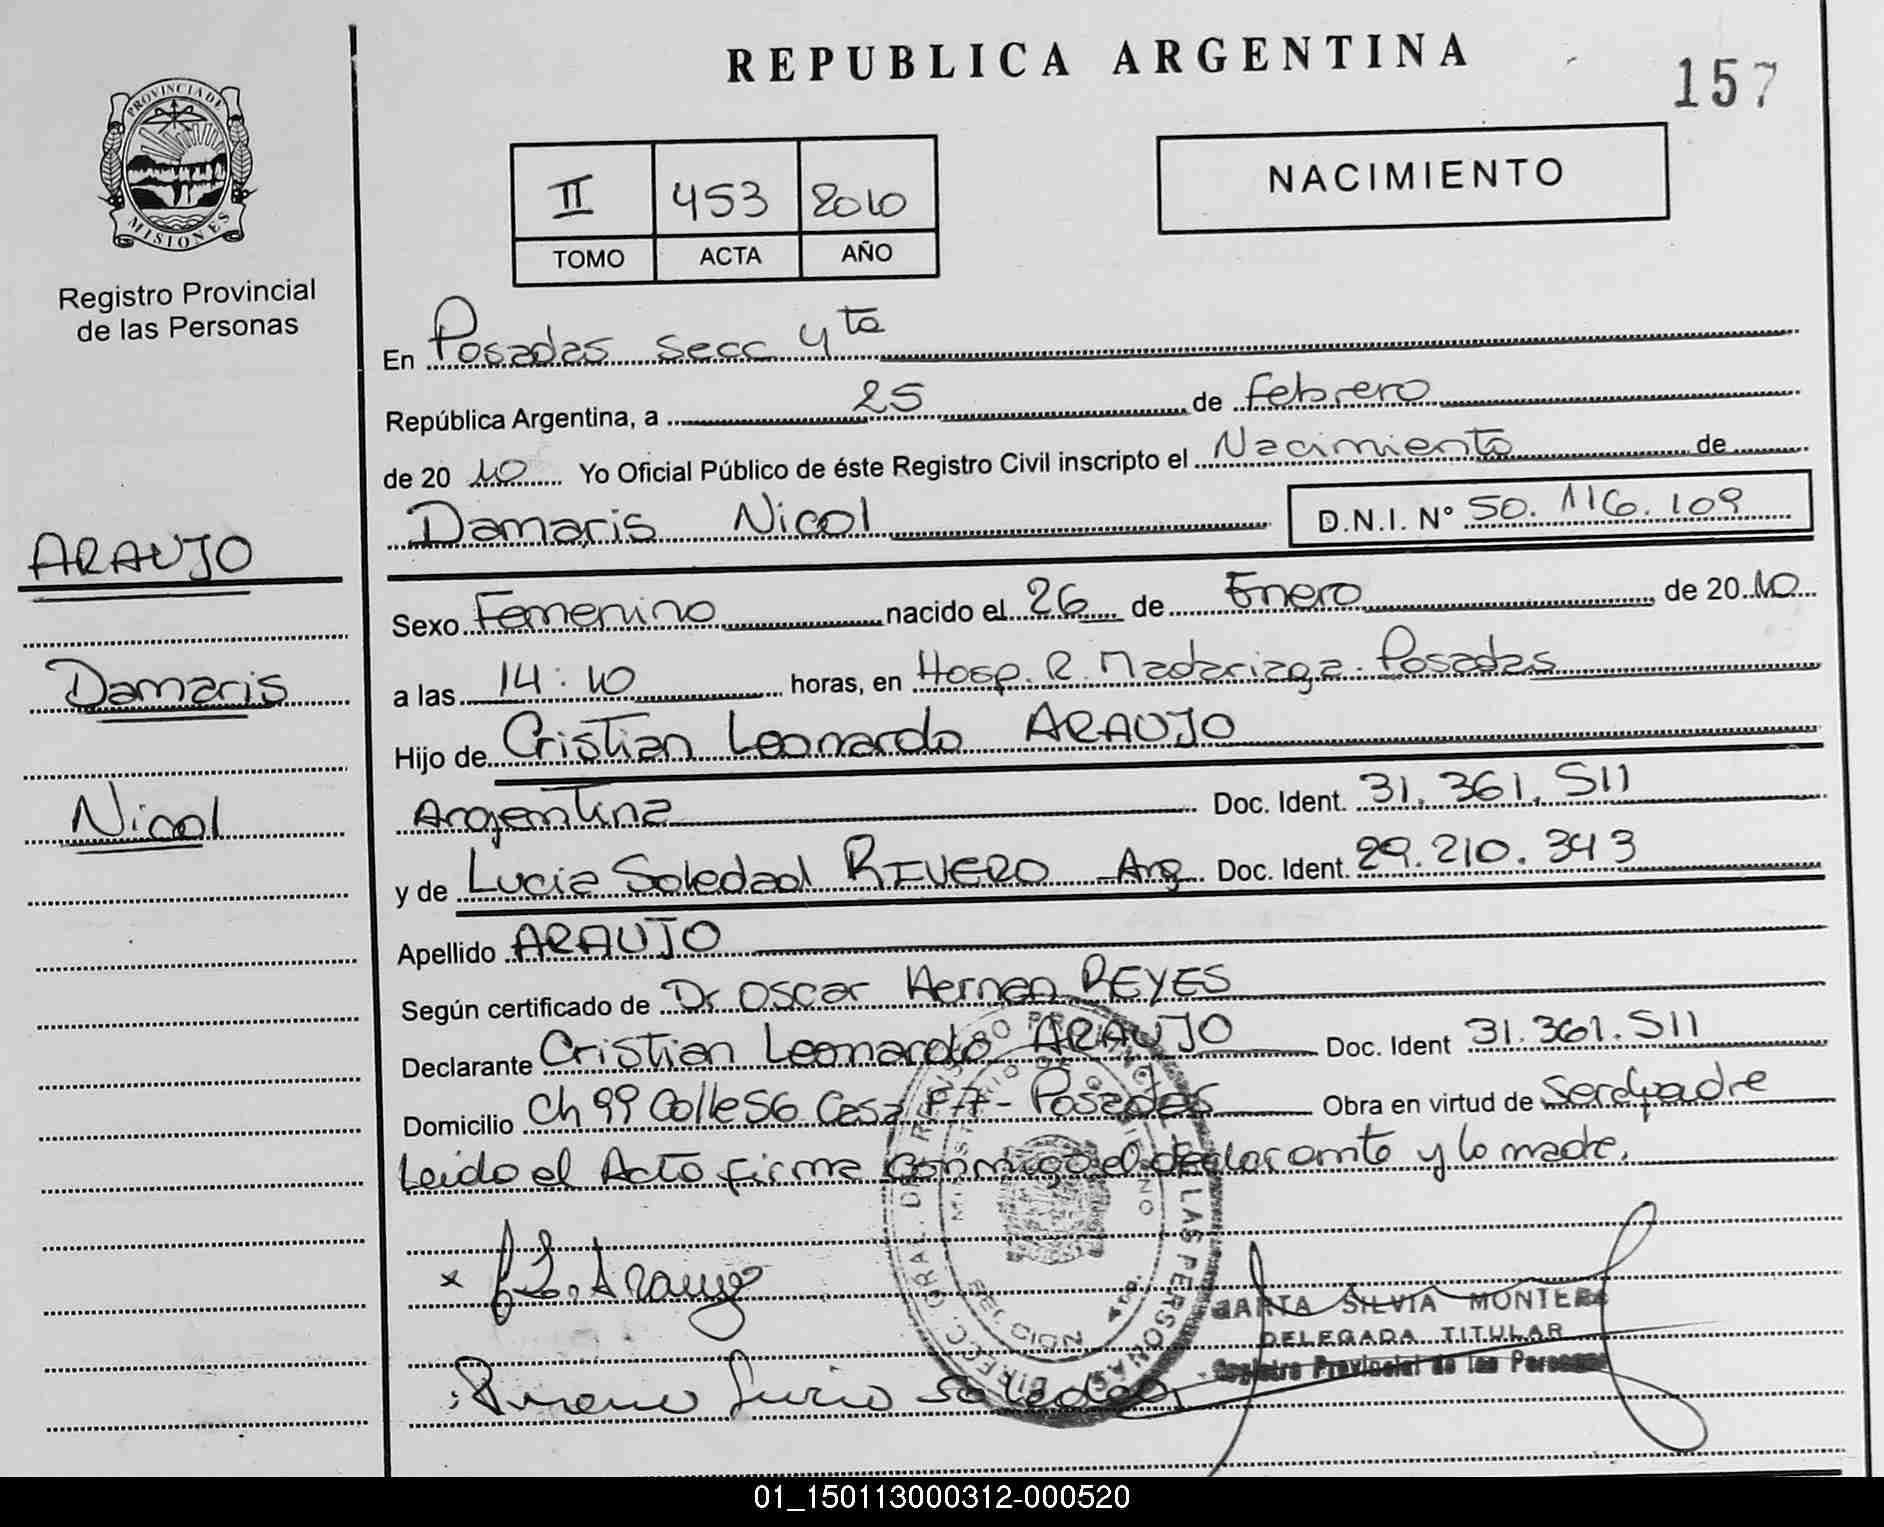 REPUBLICA ARGENTINA
157
PROVINCIA DE
MISIONES
Registro Provincial
de las Personas
II 453 2010
TOMO ACTA AÑO
NACIMIENTO
En Posadas secc 4ta
República Argentina, a 25 de febrero
de 20 10 Yo Oficial Público de éste Registro Civil inscripto el Nacimiento de
Damaris Nicol D.N.I. N° 50.116.109
ARAUJO
Damaris
Nicol
Sexo Femenino nacido el 26 de Enero de 20 10
a las 14:10 horas, en Hosp. R. Madariaga. Posadas
Hijo de Cristian Leonardo ARAUJO
Argentina Doc. Ident. 31.361.511
y de Lucia Soledad RIVERO Arg Doc. Ident. 29.210.343
Apellido ARAUJO
Según certificado de Dr Oscar Hernan REYES
Declarante Cristian Leonardo ARAUJO Doc. Ident 31.361.511
Domicilio Ch 99 Calle 56 Casa Posadas Obra en virtud de Ser padre
Leido el Acta firma conmigo el declarante y la madre.
x Araujo
Lucia Soledad
MARTA SILVIA MONTERO
DELEGADA TITULAR
Registro Provincial de las Personas
01_150113000312-000520